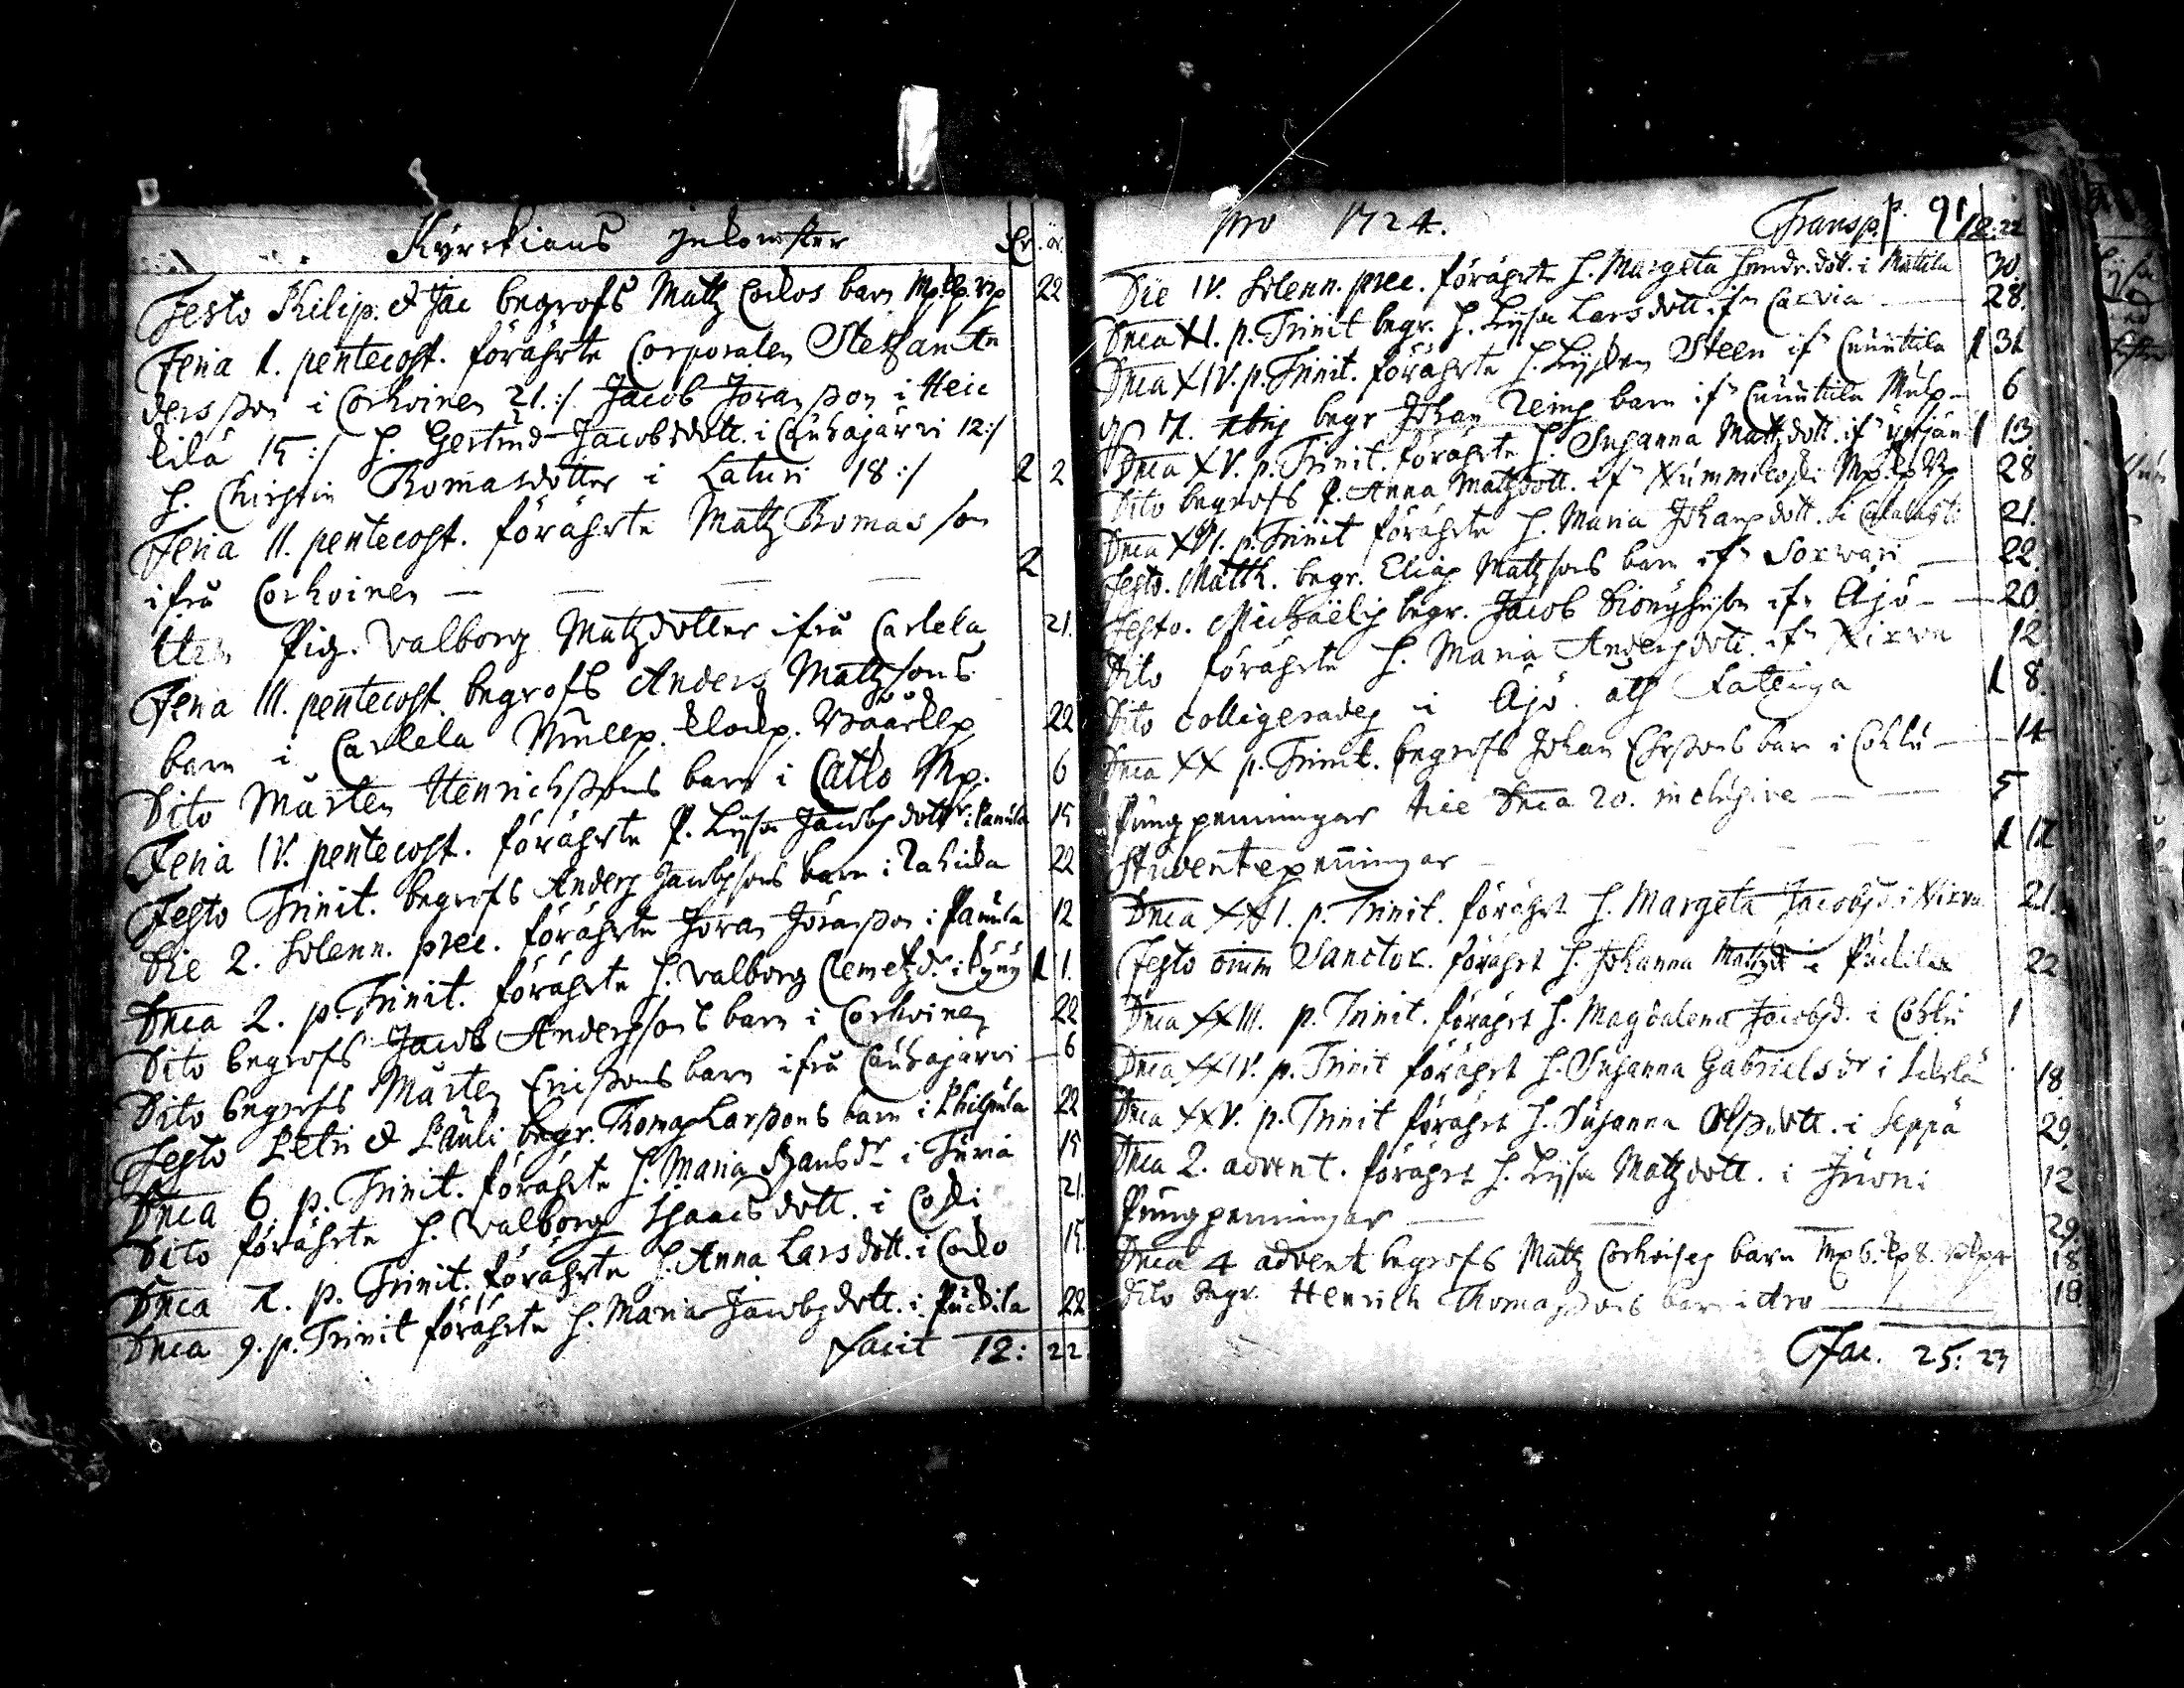 Kyrckians Jnkomster
Festo Philip. & Jac begrofs Mattz Corkos barn Mp. Clp. Vp 22
Feria 1. pentecost. förährte Corporalen Steffan An
dersson i Corhoinen 21.:/ Jacob Jöransson i Heic
kilä 15:/ H. Gertrud Jacobsdott. i Cauhajärvi 12:/
H. Chirstin Thomasdotter i Laturi 18:/ 2 2
Feria 11. pentecost. förährte Mattz Thomasson
ifrå Corhoinen — — — 2
Item Pig. Valborg Matzdotter ifrå Carlela 21.
Feria 111. pentecost. begrofs Anders Mattzsons
barn i Carlela Mullp. klockp. Våårklp 22
Dito Mårten Henrichssons barn i Callo Mp. 6
Feria 1V. pentecost. förährte P. Lysa Jacobsdottr. i Panula 15
Festo Trinit. begrofs Anders Jacobsons barn i Rahicka 22
Die 2. Solenn. prec. förährte Jöran Jöransson i Panula 12
Dnca 2. p. Trinit. förährte H. Valborg Clemetzdr. i 1 1.
Dito begrofs Jacob Anderssons barn i Corhoinen 22
Dito begrofs Mårten Ericssons barn ifrå Cauhajärvi — 6
Festo Petri & Pauli begr. Thomas Larssons barn i Philpula 22
Dnca 6 p. Trinit. förährte H. Maria Hansdr i Turia 15
Dito förährte H. Valborg Isaacsdott. i Coski 21.
Dnca 7. p. Trinit. förährte H. Anna Larsdott. i Corko 15.
Dnca 9. p. Trinit förährte H. Maria Jacobsdott. i Puckila 22
Facit 12: 22.
pro 1724. Transp. p. 91 12: 22
Die 1V. Solenn. prec. förährte H. Margeta Hendr.dott. i Mattila 30.
Dnca XI. p. Trinit begr. H. Lysa Larsdott. ifr Carvia — 28.
Dnca XIV. p. Trinit. förährte H. Steen ifr Cuuttila 1 31
begr Johan Reins barn ifr Cuuttila Mulp — 6
Dnca XV. p. Trinit. förährte H. Susanna Mattzdott. ifr 1 13.
Dito begrofs P. Anna Matzdott. ifr Nummicoski Mp. kp Vp 28
Dnca XVI. p. Trinit förährte H. Maria Johansdott. 21.
Festo. Matth. begr. Elias Matzsons barn ifr Sorvari — 22.
Festo. Michaëlis begr. Jacob ifr Ajo — 20
Dito förährte H. Maria Andersdott. ifr Nirva 12
Dito colligerades i Ajo åth Fatiga 1 8.
Dnca XX p. Trinit. begrofs Johan Ersons barn i Cohlu — 14
Pungpenningar Hic Dnca 20. inclusive — — 5
Studentepeningar — — — 1 17
Dnca XXI. p. Trinit. förährt H. Margeta Jacobsd. i Nirva 21.
Festo omm Sanctor. föräht H. Johanna Matzd i Puckila 22
Dnca XXIII. p. Trinit. föräht H. Magdalena Jacobsd. i Cohlu 1
Dnca XXIV. p. Trinit föräht H. Susanna Gabrielsdr i 18
Dnca XXV. p. Trinit föräht H. Susanna Olssdott. i Seppä 29.
Dnca 2. advent. föräht H. Lysa Matzdott. i Juoni 12
Pungpenningar — — — 29.
Dnca 4 advent begrofs Mattz Corhoises barn Mp 6. kp 8. 18
dito begr. Henrich Thomassons barn i Aro — 18.
Fac. 25: 23